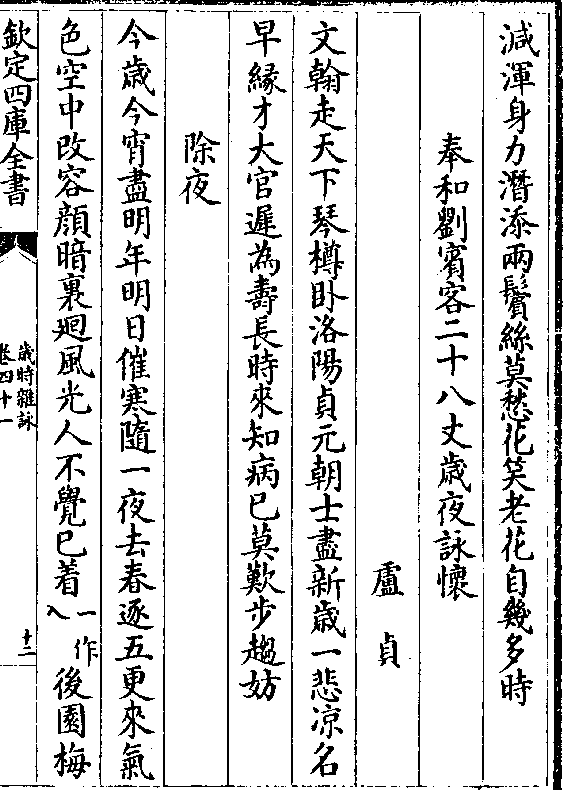 減渾身力潛添兩鬢絲莫愁花笑老花自幾多時
奉和劉賓客二十八丈歲夜詠懷
盧貞
文翰走天下琴樽卧洛陽貞元朝士盡新歳一悲涼名
早緣才大官遲為壽長時來知病已莫歎步趨妨
除夜
今歳今宵盡明年明日催寒隨一夜去春逐五更來氣
色空中改容顔暗裏廻風光人不覺已着一作入後園梅
欽定四庫全書
歲時雜詠
卷四十一
十二